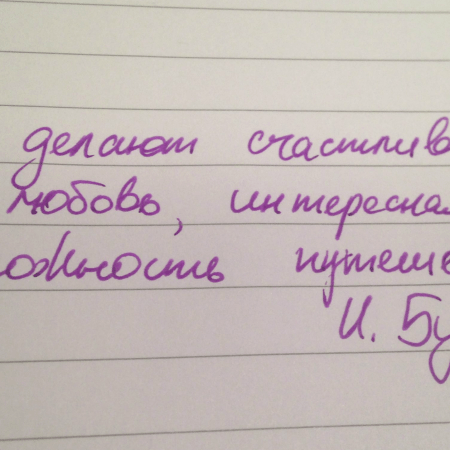 делают счастлив
любовь, интересна
ожность путеше
И. Бу